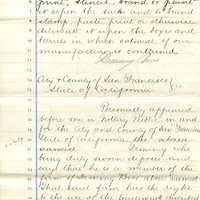 print, stencil, brand or paint
it upon the sack and to brand
stamp, paste, print or otherwise
delineate it upon the boxes and
barrels in which oatmeal of our
manufacture is contained
Deming Bros
City & County of San Francisco
State of California
Personally appeared
before me a Notary Public in and
for the City and County of San Francisco
State of California, the above
named Deming who
being duly sworn deposes and
says that he is a member of the
firm of Deming Bros above named
that said firm has the right
to the use of the trademark